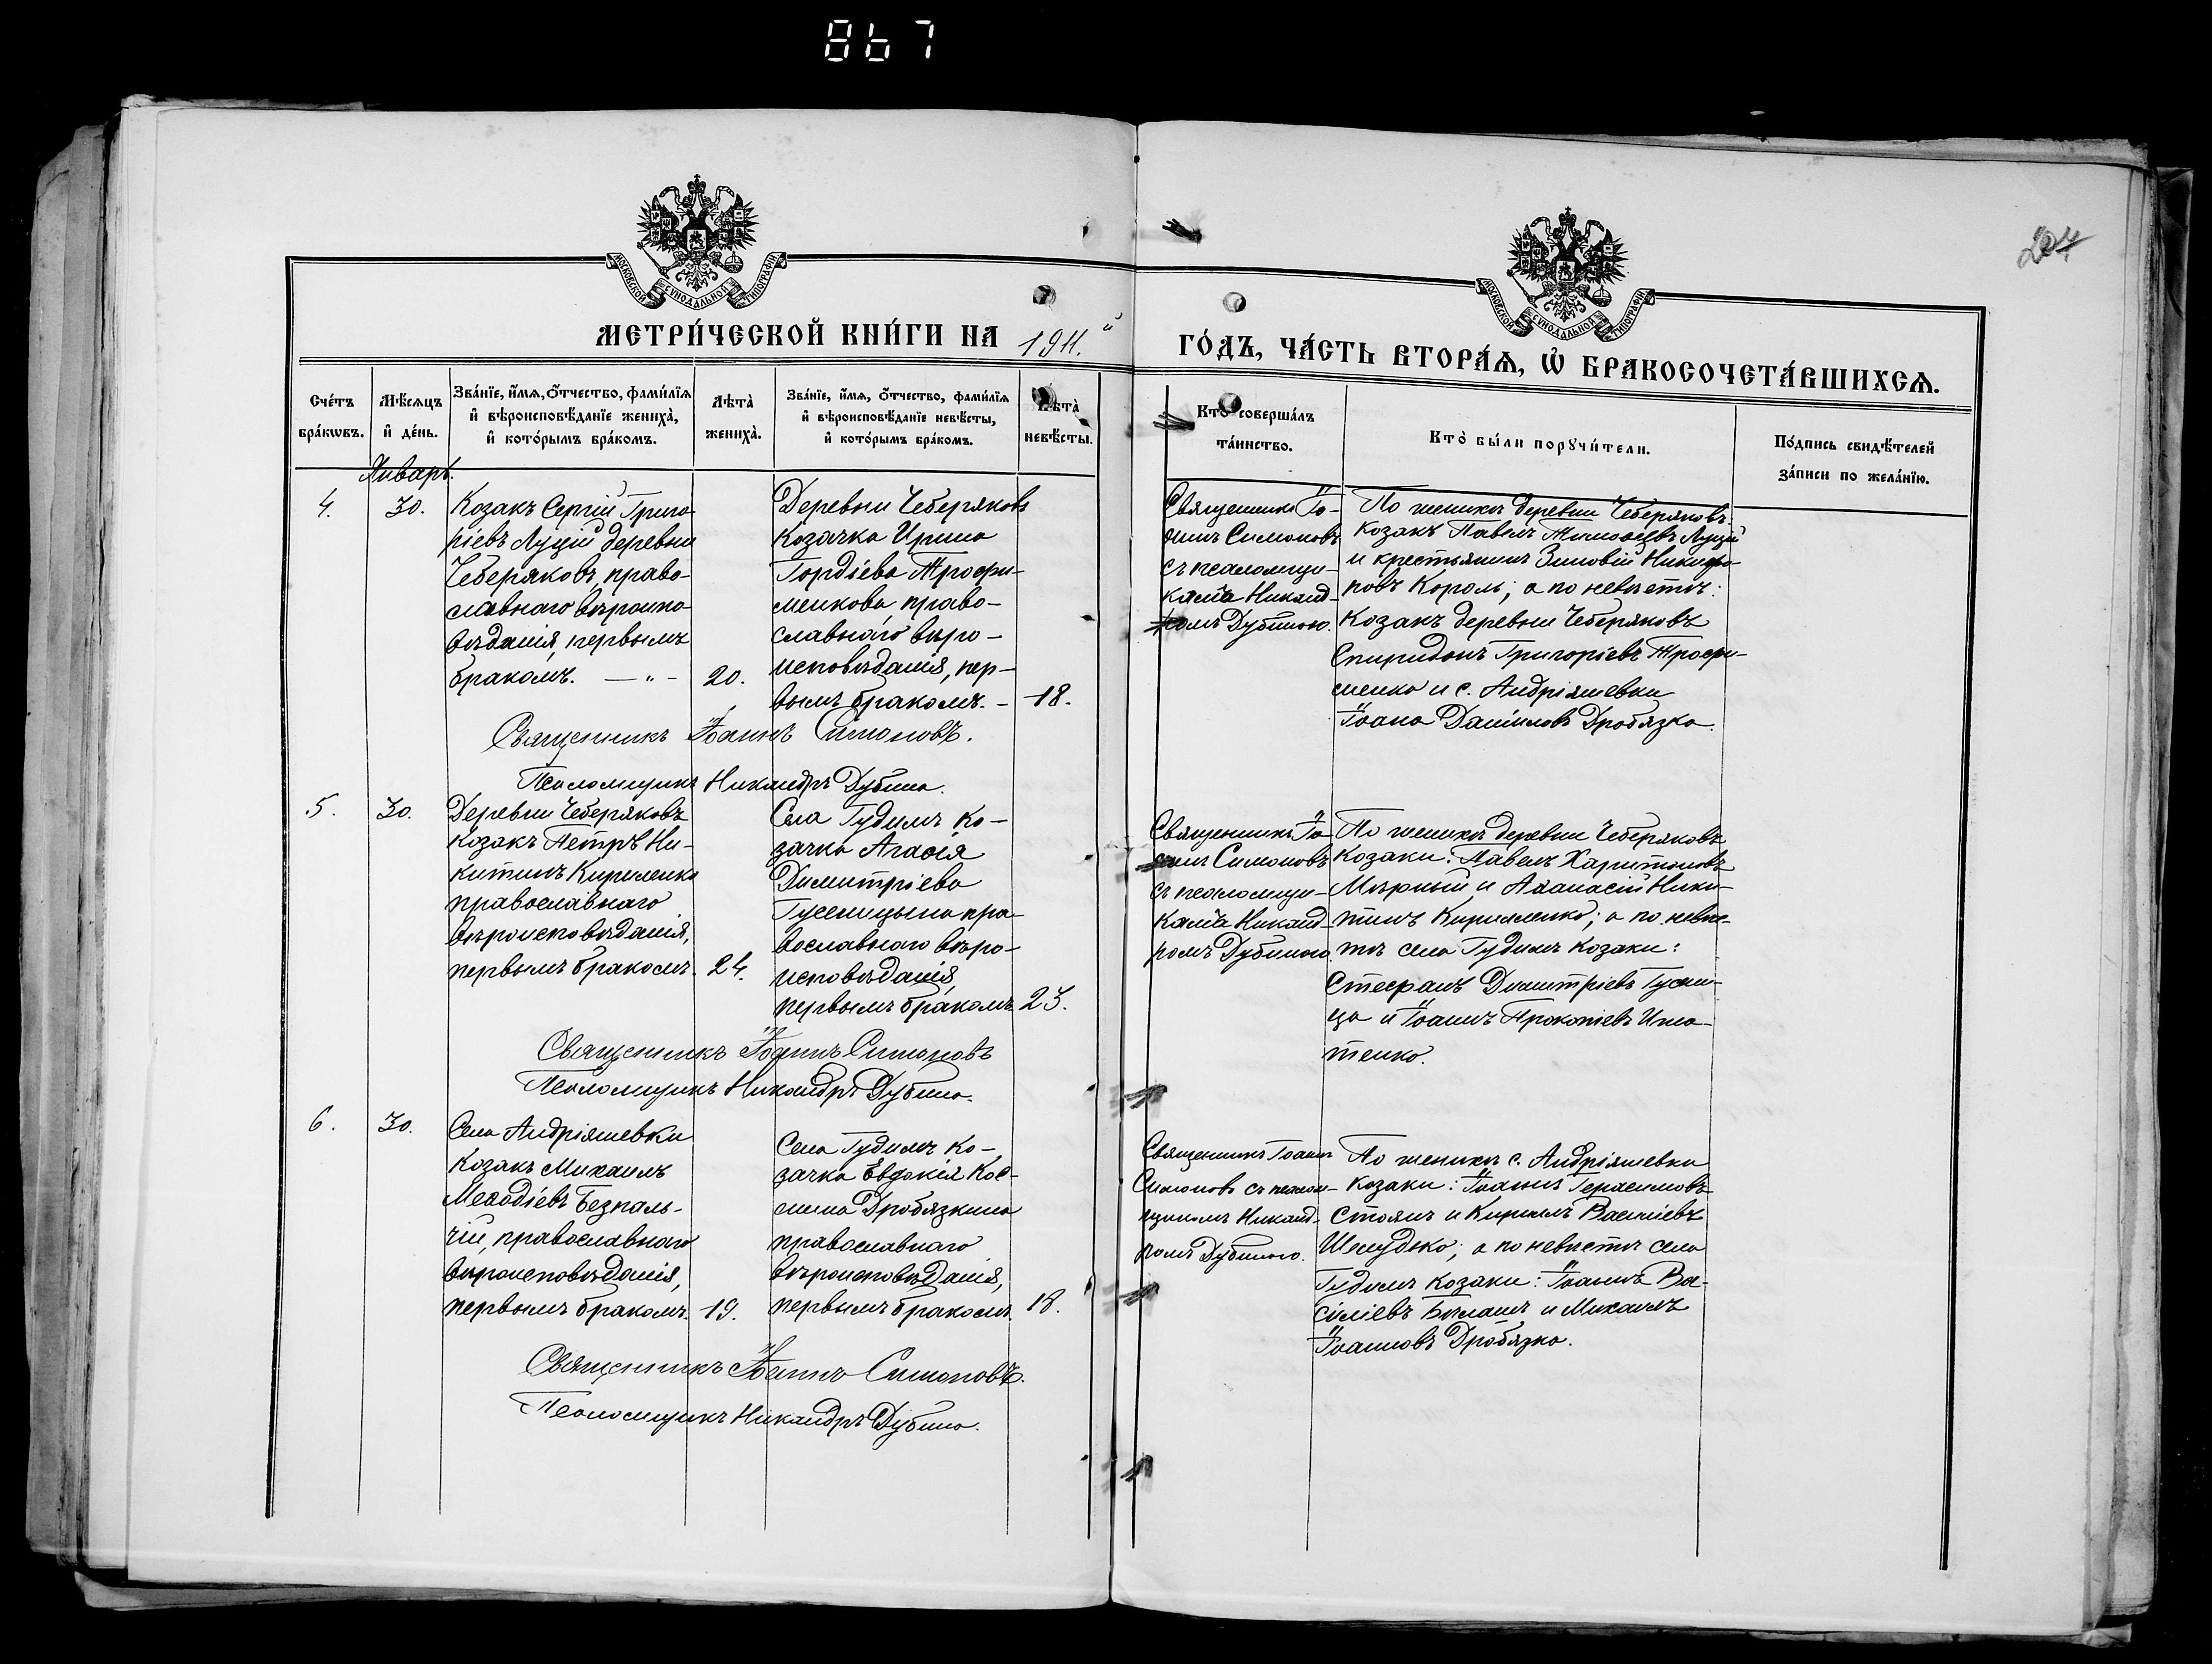 867
204
МОСКОВСКОЙ СѴНОДАЛЬНОЙ ТИПОГРАФІИ
МОСКОВСКОЙ СѴНОДАЛЬНОЙ ТИПОГРАФІИ
МЕТРИ́ЧЕСКОЙ КНИ́ГИ НА 1911.й
ГО́ДЪ, ЧА́СТЬ ВТОРА́Ѧ, Ѡ҆ БРАКОСОЧЕТА́ВШИХСѦ.
Сче́тъ
бра́кѡвъ.
Мѣ́сяцъ
и҆ де́нь.
Зва́нїе, и҆́мѧ, ѻ҆́тчество, фами́лїѧ
и҆ вѣроисповѣ́данїе жениха̀,
и҆ кото́рымъ бра́комъ.
Лѣта̀
жениха̀.
Зва́нїе, и҆́мѧ, ѻ҆́тчество, фами́лїѧ
и҆ вѣроисповѣ́данїе невѣ́сты,
и҆ кото́рымъ бра́комъ.
Лѣта̀
невѣ́сты.
Кто̀ соверша́лъ
та́инство.
Кто̀ бы́ли порꙋчи́тели.
По́дпись свидѣ́телей
за́писи по жела́нїю.
Январь.
4.
30.
Козакъ Сергій Григо-
ріевъ Луцій деревни
Чеберяковъ, право-
славнаго вѣроиспо-
вѣданія, первымъ
бракомъ. — „ —
20.
Деревни Чеберяковъ
козачка Ирина
Гордіева Трофи-
менкова право-
славнаго вѣро-
исповѣданія, пер-
вымъ бракомъ. —
18.
Священникъ Іо-
аннъ Симоновъ
съ псаломщи-
комъ Никанд-
ромъ Дубиною.
По женихѣ деревни Чеберяковъ
козакъ Павелъ Тимоѳеевъ Луцій
и крестьянинъ Зиновій Никифо-
ровъ Король; а по невѣстѣ:
Козакъ деревни Чеберяковъ
Спиридонъ Григоріевъ Трофи-
менко и с. Андріяшевки
Іоанъ Даниловъ Дробязко.
Священникъ Іоаннъ Симоновъ.
Псаломщикъ Никандръ Дубина.
5.
30.
Деревни Чеберяковъ
козакъ Петръ Ни-
китинъ Кириленко
православнаго
вѣроисповѣданія,
первымъ бракомъ.
24.
Села Гудимъ ко-
зачка Агаѳія
Димитріева
Гусеницына пра-
вославнаго вѣро-
исповѣданія,
первымъ бракомъ.
23.
Священникъ Іо-
аннъ Симоновъ
съ псаломщи-
комъ Никанд-
ромъ Дубиною.
По женихѣ деревни Чеберяковъ
козаки: Павелъ Харитоновъ
Мѣрный и Аѳанасій Ники-
тинъ Кириленко; а по невѣ-
стѣ села Гудимъ козаки:
Стефанъ Димитріевъ Гусени-
ца и Іоаннъ Прокопіевъ Игна-
тенко.
Священникъ Іоаннъ Симоновъ
Псаломщикъ Никандръ Дубина.
6.
30.
Села Андріяшевки
козакъ Михаилъ
Меѳодіевъ Безпаль-
чій, православнаго
вѣроисповѣданія,
первымъ бракомъ.
19.
Села Гудимъ ко-
зачка Евдокія Кос-
мина Дробязкина
православнаго
вѣроисповѣданія,
первымъ бракомъ.
18.
Священникъ Іоаннъ
Симоновъ съ псалом-
щикомъ Никанд-
ромъ Дубиною.
По женихѣ с. Андріяшевки
козаки: Іоаннъ Герасимовъ
Стоянъ и Кириллъ Василіевъ
Шелудько; а по невѣстѣ села
Гудимъ козаки: Іоаннъ Ва-
силіевъ Билашъ и Михаилъ
Іоанновъ Дробязко.
Священникъ Іоаннъ Симоновъ.
Псаломщикъ Никандръ Дубина.